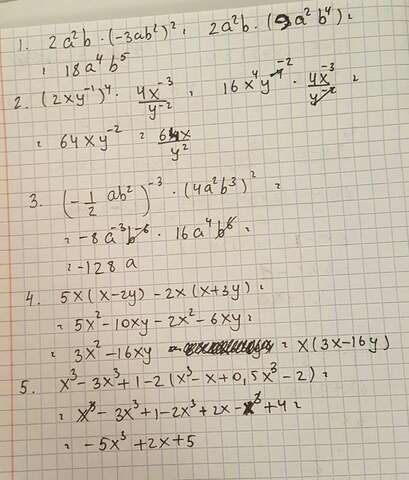 1. 2a²b · (-3ab²)² = 2a²b · (9a²b⁴) =
= 18a⁴b⁵
2. (2xy⁻¹)⁴ · 4x⁻³/y⁻² = 16x⁴y⁻⁴ ⁻² · 4x⁻³/y⁻² =
= 64xy⁻² = 64x/y²
3. (-1/2 ab²)⁻³ · (4a²b³)² =
= -8a⁻³b⁻⁶ · 16a⁴b⁶ =
= -128a
4. 5x(x-2y) - 2x(x+3y) =
= 5x² - 10xy - 2x² - 6xy =
= 3x² - 16xy = x(3x-16y)
5. x³ - 3x³ + 1 - 2(x³ - x + 0,5x³ - 2) =
= x³ - 3x³ + 1 - 2x³ + 2x - x³ + 4 =
= -5x³ + 2x + 5